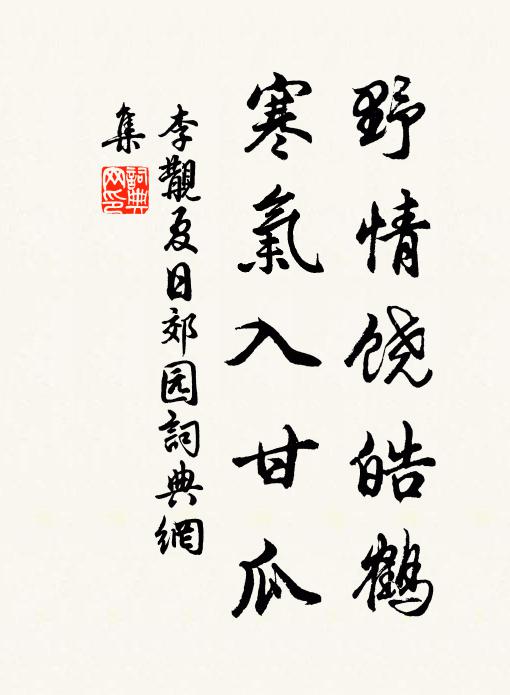 野情饶皓鶴
寒氣入甘瓜
李觀夏日郊园詞典網
集
詞典
网印